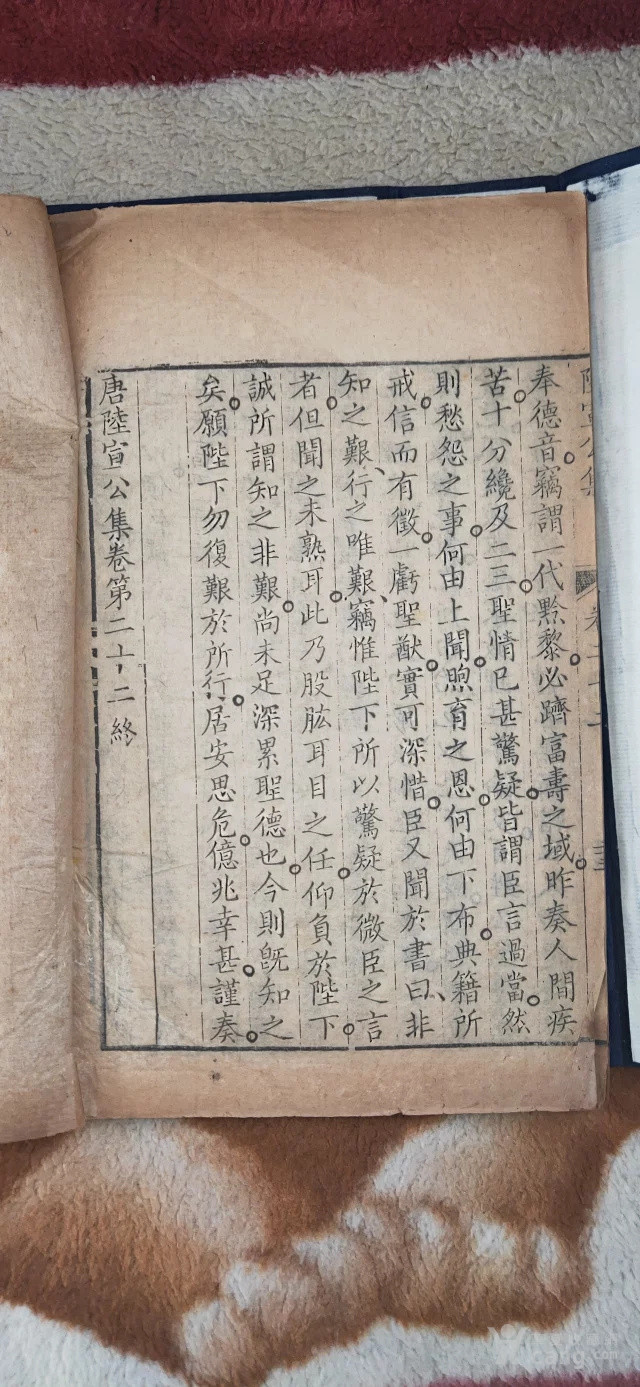 陸宣公集
奉德音竊謂一代黔黎必躋富壽之域昨奏人間疾
苦十分纔及二三聖情已甚驚疑皆謂臣言過當然
則愁怨之事何由上聞煦育之恩何由下布典籍所
戒信而有徵一虧聖猷實可深惜臣又聞於書曰非
知之艱行之唯艱竊惟陛下所以驚疑於微臣之言
者但聞之未熟耳此乃股肱耳目之任仰負於陛下
誠所謂知之非艱尚未足深累聖德也今則旣知之
矣願陛下勿復艱於所行居安思危億兆幸甚謹奏
唐陸宣公集卷第二十二終